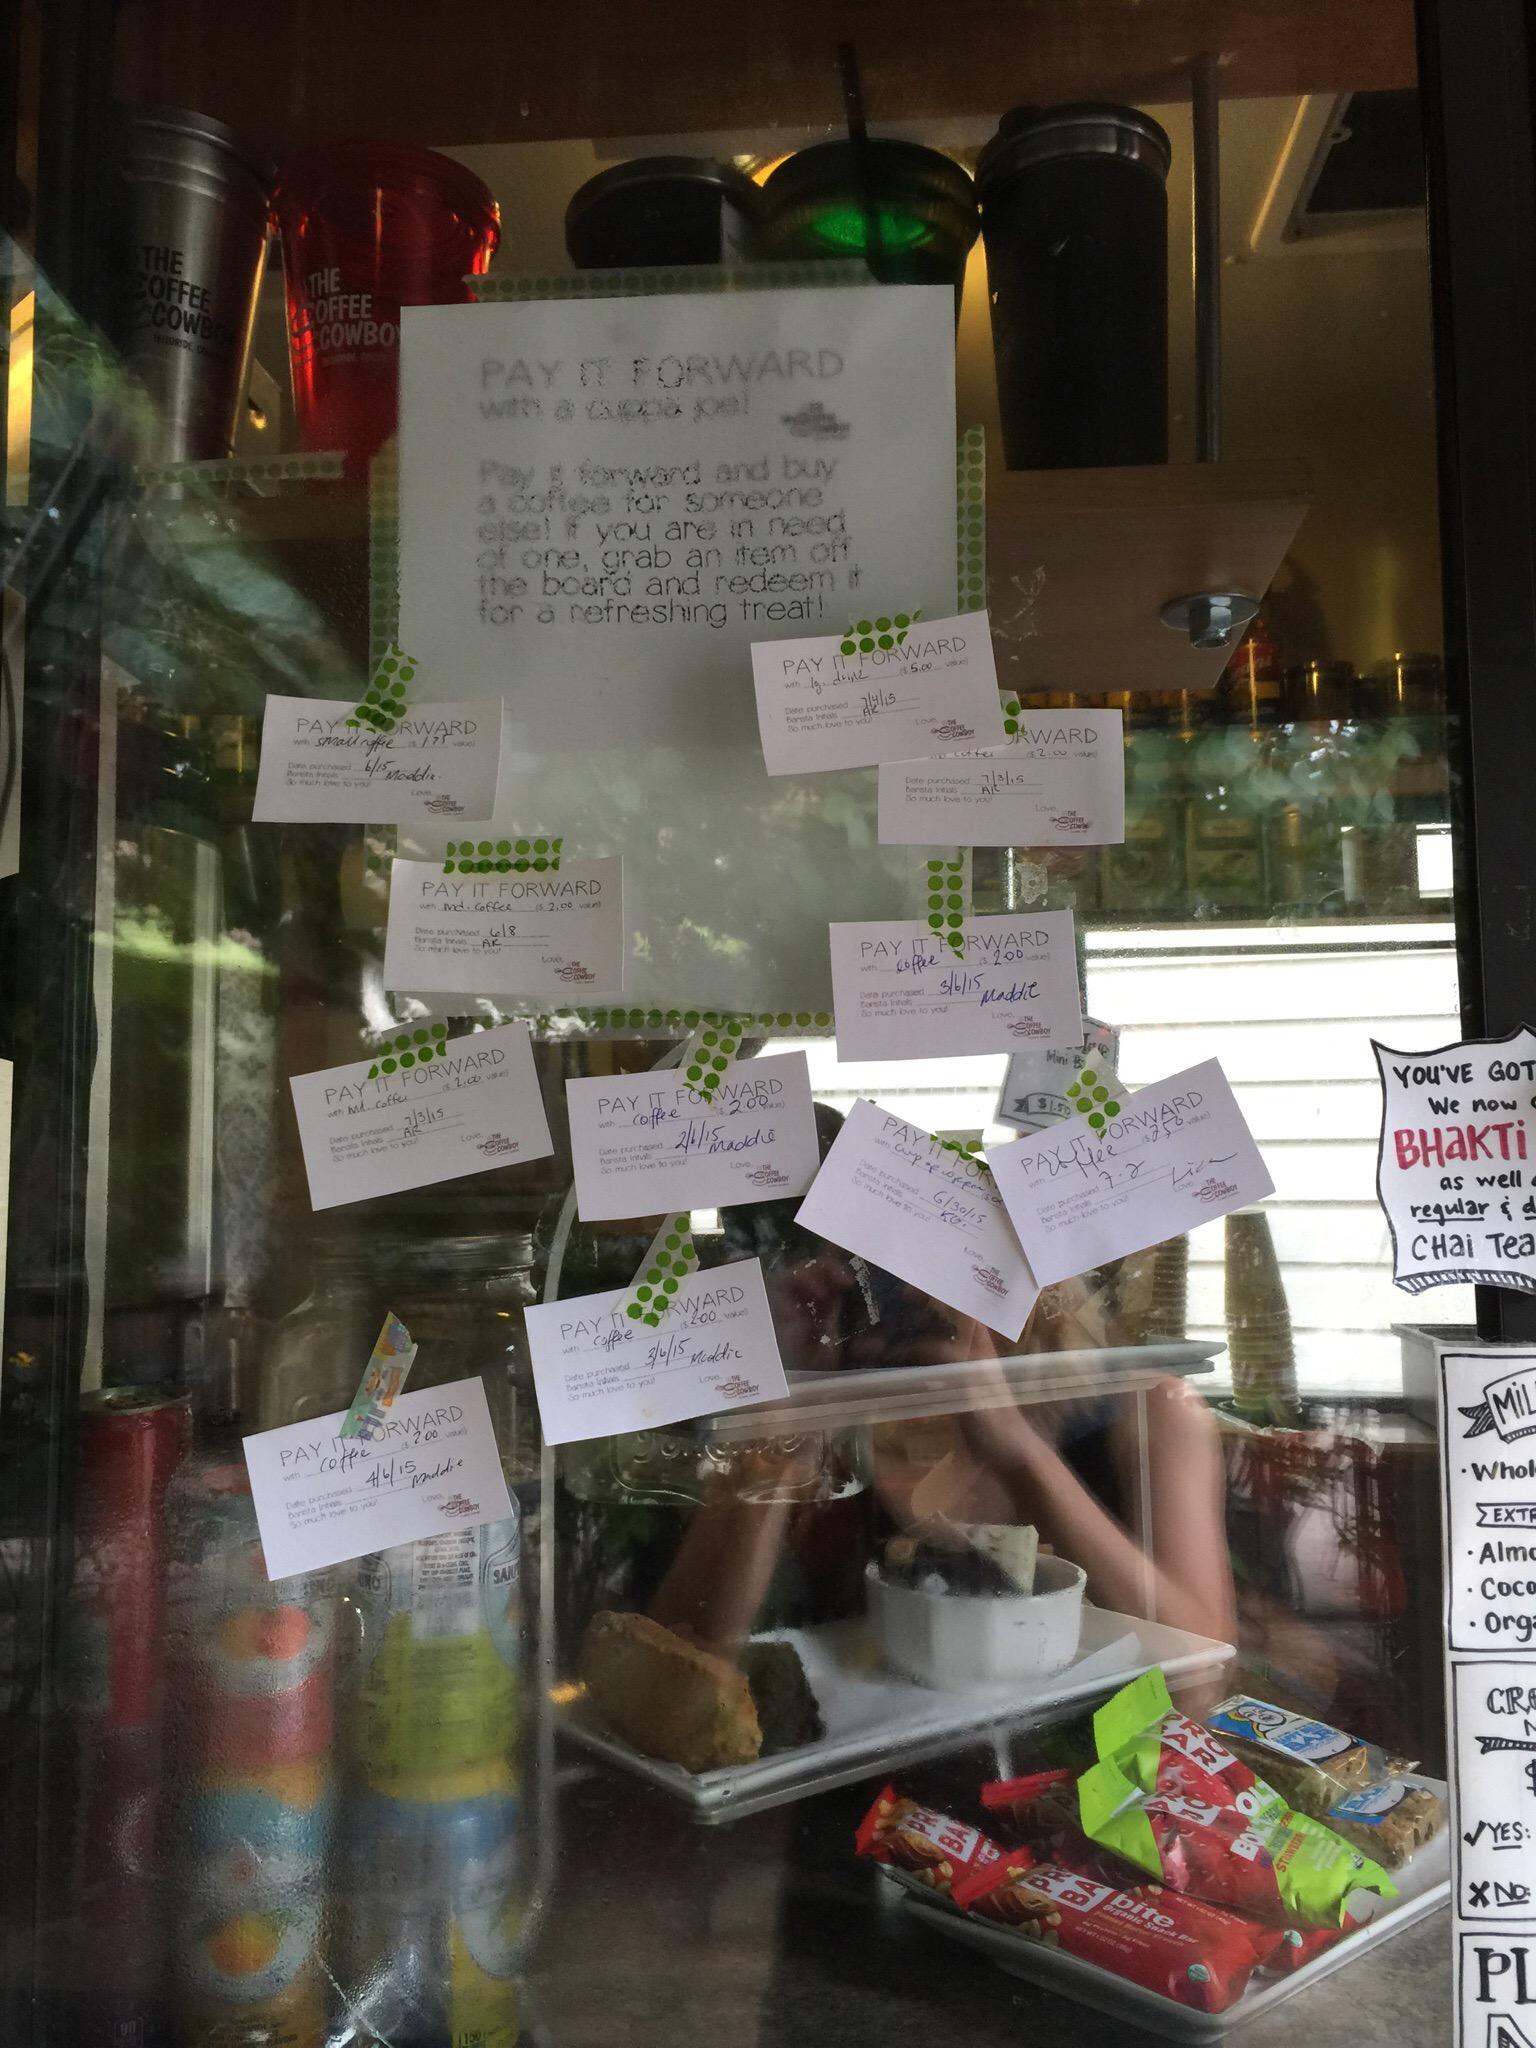 THE
COFFEE
COWBOY
TELLURIDE,
THE
COFFEE
COWBOY
PAY IT FORWARD
with a cuppa joe!
THE
COFFEE
COWBOY
Pay it forward and buy
a coffee for someone
else! If you are in need
of one, grab an item off
the board and redeem it
for a refreshing treat!
PAY IT FORWARD
with lg. drink ($ 5.00 value)
Date purchased 7/4/15
Barista Initials AK
So much love to you!
Love,
THE
COFFEE
COWBOY
PAY IT FORWARD
with small coffee ($ 1.75 value)
Date purchased 6/15
Barista Initials Maddie
So much love to you!
Love,
THE
COFFEE
COWBOY
RWARD
coffee ($ 2.00 value)
Date purchased 7/3/15
Barista Initials AK
So much love to you!
Love,
THE
COFFEE
COWBOY
PAY IT FORWARD
with Md. Coffee ($ 2.00 value)
Date purchased 6/8
Barista Initials AK
So much love to you!
Love,
THE
COFFEE
COWBOY
PAY IT FORWARD
with coffee ($ 2.00 value)
Date purchased 3/6/15
Barista Initials Maddie
So much love to you!
Love,
THE
COFFEE
COWBOY
PAY IT FORWARD
with Md. Coffee ($ 2.00 value)
Date purchased 7/3/15
Barista Initials AK
So much love to you!
Love,
THE
COFFEE
COWBOY
PAY IT FORWARD
with coffee ($ 2.00 value)
Date purchased 2/6/15
Barista Initials Maddie
So much love to you!
Love,
THE
COFFEE
COWBOY
Mini
$1.50
PAY IT FOR
with Cup of coffee ($
Date purchased 6/30/15
Barista Initials KG.
So much love to you!
Love,
THE
COFFEE
COWBOY
PAY IT FORWARD
with Coffee ($ 2.50 value)
Date purchased 7-2
Barista Initials Lisa
So much love to you!
Love,
THE
COFFEE
COWBOY
YOU'VE GOT
We now
BHAKTI
as well
regular & d
CHAI TEA
PAY IT FORWARD
with coffee ($ 2.00 value)
Date purchased 3/6/15
Barista Initials Maddie
So much love to you!
Love,
THE
COFFEE
COWBOY
PAY IT FORWARD
with coffee ($ 2.00 value)
Date purchased 4/6/15
Barista Initials Maddie
So much love to you!
Love,
THE
COFFEE
COWBOY
MIL
• Whol
EXTR
• Almo
• Coco
• Orga
CR
$
✓YES:
XNO:
PL
PRO
BAR
PRO
BAR
bite
Organic Snack Bar
BOL